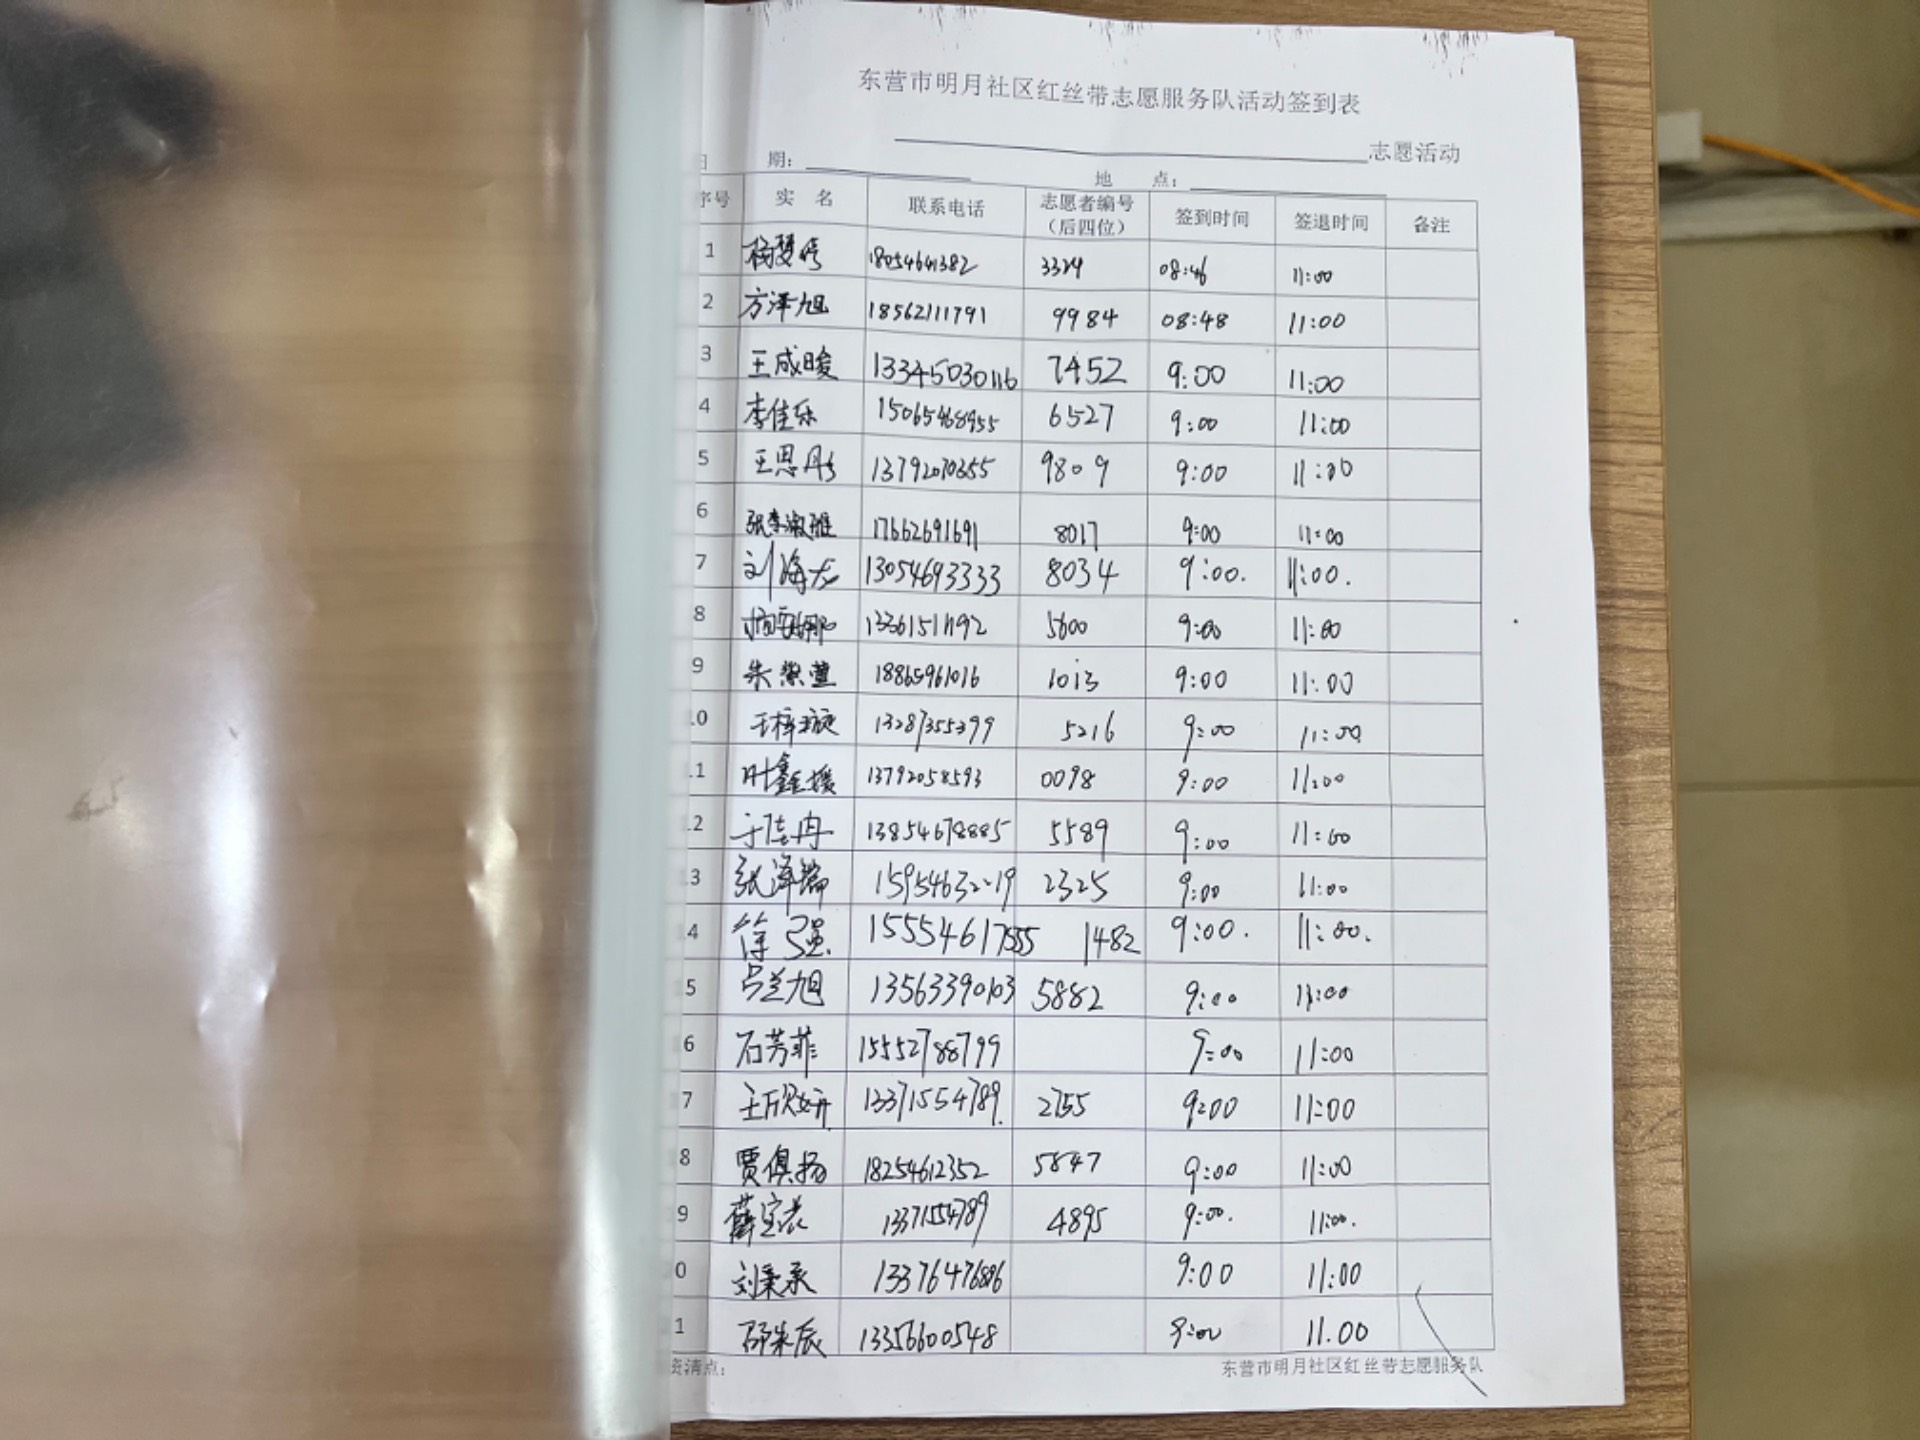 东营市明月社区红丝带志愿服务队活动签到表
志愿活动
日 期： 地 点：
序号 实 名 联系电话 志愿者编号（后四位） 签到时间 签退时间 备注
1 杨梦 18054641382 3324 08:46 11:00
2 方泽旭 18562111791 9984 08:48 11:00
3 王成晙 13345030116 7452 9:00 11:00
4 李佳乐 15065468955 6527 9:00 11:00
5 王思彤 13792070355 9809 9:00 11:00
6 张李淑雅 17662691691 8017 9:00 11:00
7 刘海龙 13054693333 8034 9:00. 11:00.
8 13361511192 5600 9:00 11:00
9 朱紫萱 18865961016 1013 9:00 11:00
10 王梓璇 13287355399 5216 9:00 11:00
11 叶鑫媛 13792058593 0098 9:00 11:00
12 于佳冉 13854678885 5589 9:00 11:00
13 张泽瑞 15954632219 2325 9:00 11:00
14 徐强 15554617555 1482 9:00. 11:00.
5 吕兰旭 13563390103 5882 9:00 11:00
6 石芳菲 15552788799 9:00 11:00
7 王欣妍 13371554789. 2755 9:00 11:00
8 贾俱扬 18254612352 5847 9:00 11:00
9 薛宝 13371554789 4895 9:00. 11:00.
0 刘秉承 13376476886 9:00 11:00
1 邵朱辰 13356600548 9:00 11.00
资清点： 东营市明月社区红丝带志愿服务队